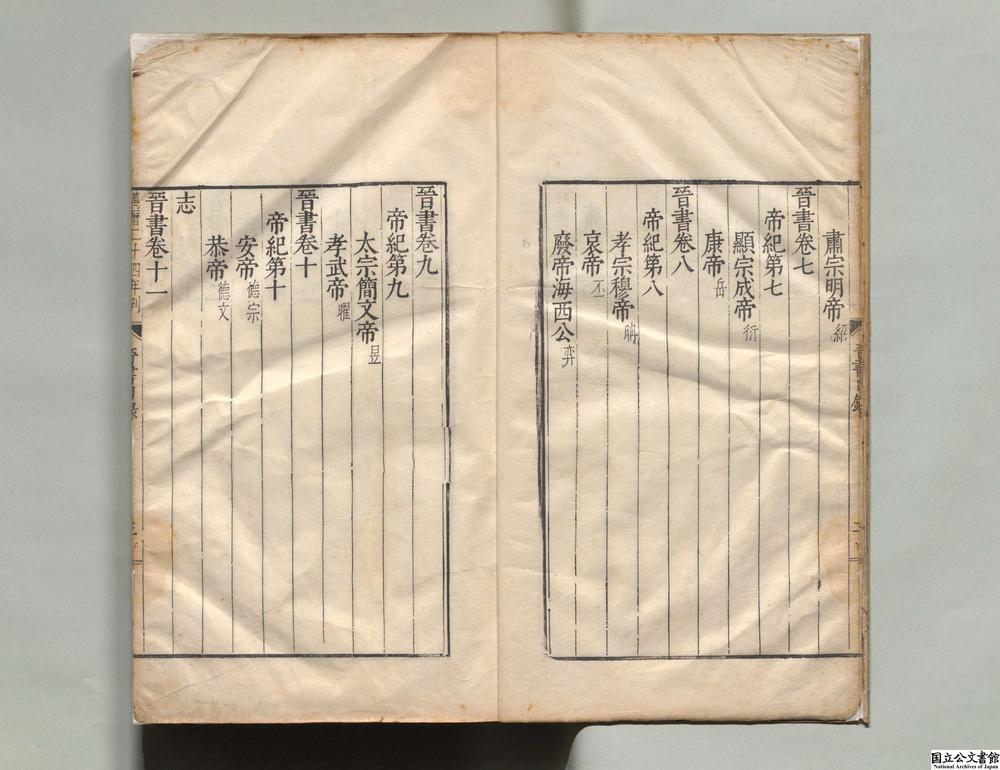 肅宗明帝紹
晉書卷七
帝紀第七
顯宗成帝衍
康帝岳
晉書卷八
帝紀第八
孝宗穆帝聃
哀帝丕
廢帝海西公弈
晉書卷九
帝紀第九
太宗簡文帝昱
孝武帝曜
晉書卷十
帝紀第十
安帝德宗
恭帝德文
志
晉書卷十一
国立公文書館
National Archives of Japan